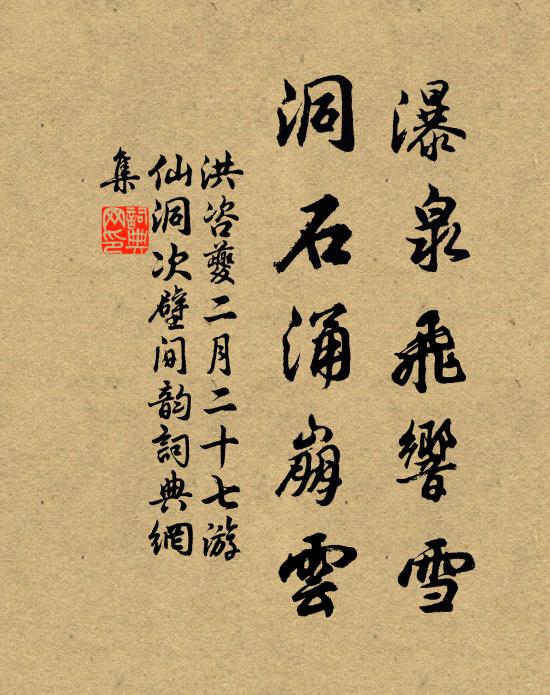 瀑泉飛響雪
洞石涌崩雲
洪咨夔二月二十七游
仙洞次壁间韵詞典網
集
詞典
网印